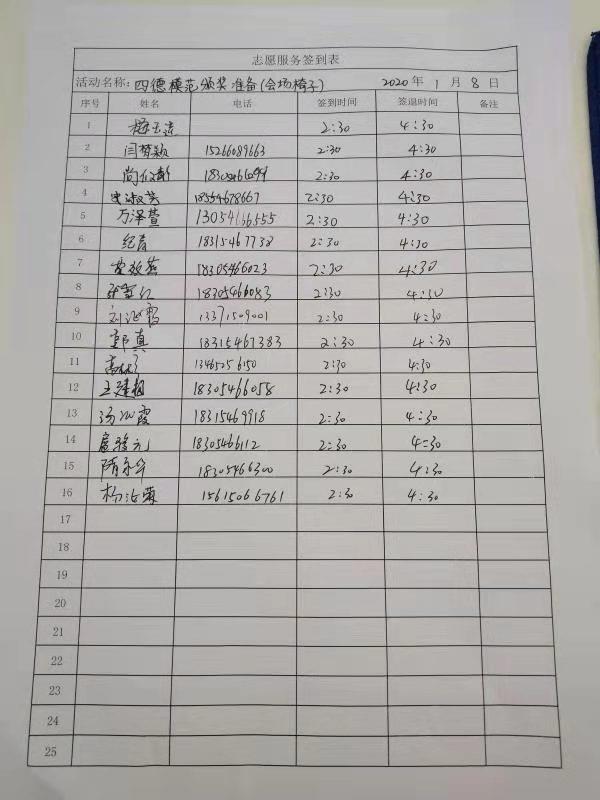 志愿服务签到表
活动名称：四德模范颁奖准备(会场椅子) 2020年 1月 8日
序号 姓名 电话 签到时间 签退时间 备注
1 2:30 4:30
2 闫梦颖 15266089663 2:30 4:30
3 2:30 4:30
4 宋淑芸 18554678667 2:30 4:30
5 万泽萱 2:30 4:30
6 纪青 18315467738 2:30 4:30
7 18305466023 2:30 4:30
8 18305466083 2:30 4:30
9 13371509001 2:30 4:30
10 郭真 18315467383 2:30 4:30
11 13465256150 2:30 4:30
12 18305466058 2:30 4:30
13 18315469918 2:30 4:30
14 18305466112 2:30 4:30
15 隋永华 18305466300 2:30 4:30
16 15615066761 2:30 4:30
17
18
19
20
21
22
23
24
25